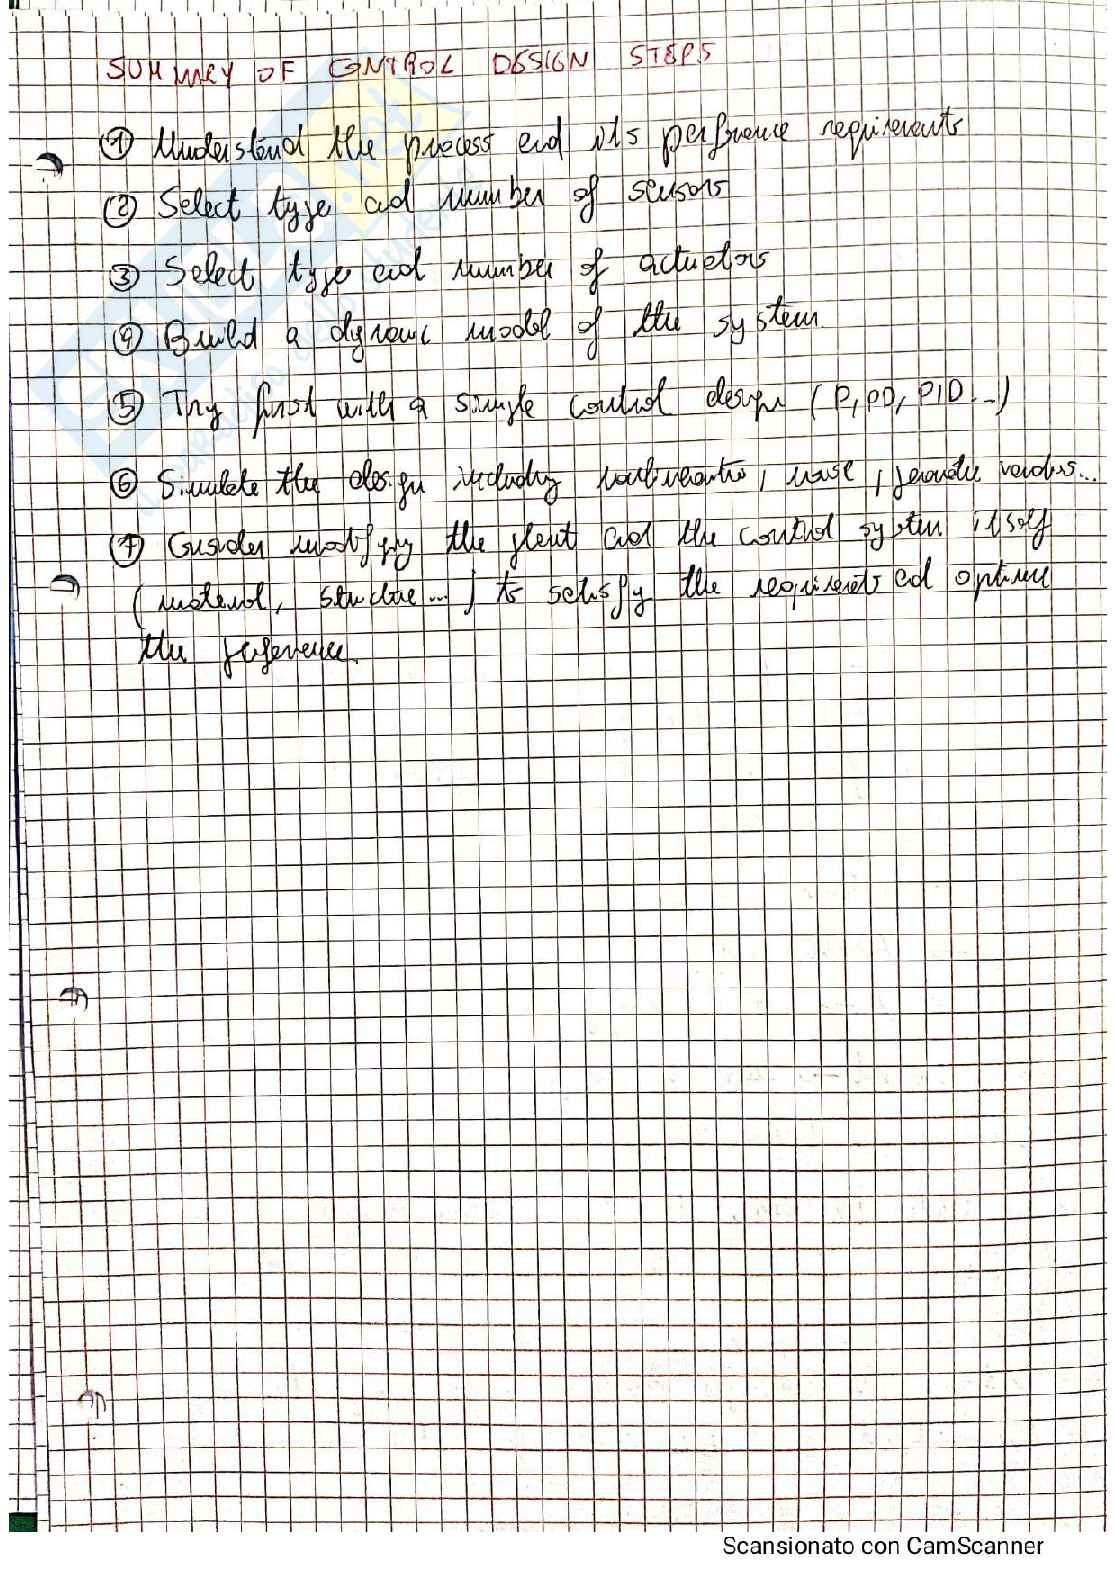 SUMMARY OF CONTROL DESIGN STEPS
① Understand the process and its performance requirements
② Select type and number of sensors
③ Select type and number of actuators
④ Build a dynamic model of the system
⑤ Try first with a simple control design (P, PD, PID...)
⑥ Simulate the design including nonlinearities, noise, parameter ...
⑦ Consider modifying the plant and the control system itself
(material, structure...) to satisfy the requirements and optimize
the performance.
Scansionato con CamScanner